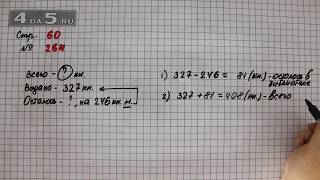 4DA5.RU
Стр. 60
№ 264
Всего - ? кн.
Выдано - 327 кн.
Осталось - ?, на 246 кн. м.
1) 327 - 246 = 81 (кн.) - осталось в библиотеке
2) 327 + 81 = 408 (кн.) - Всего